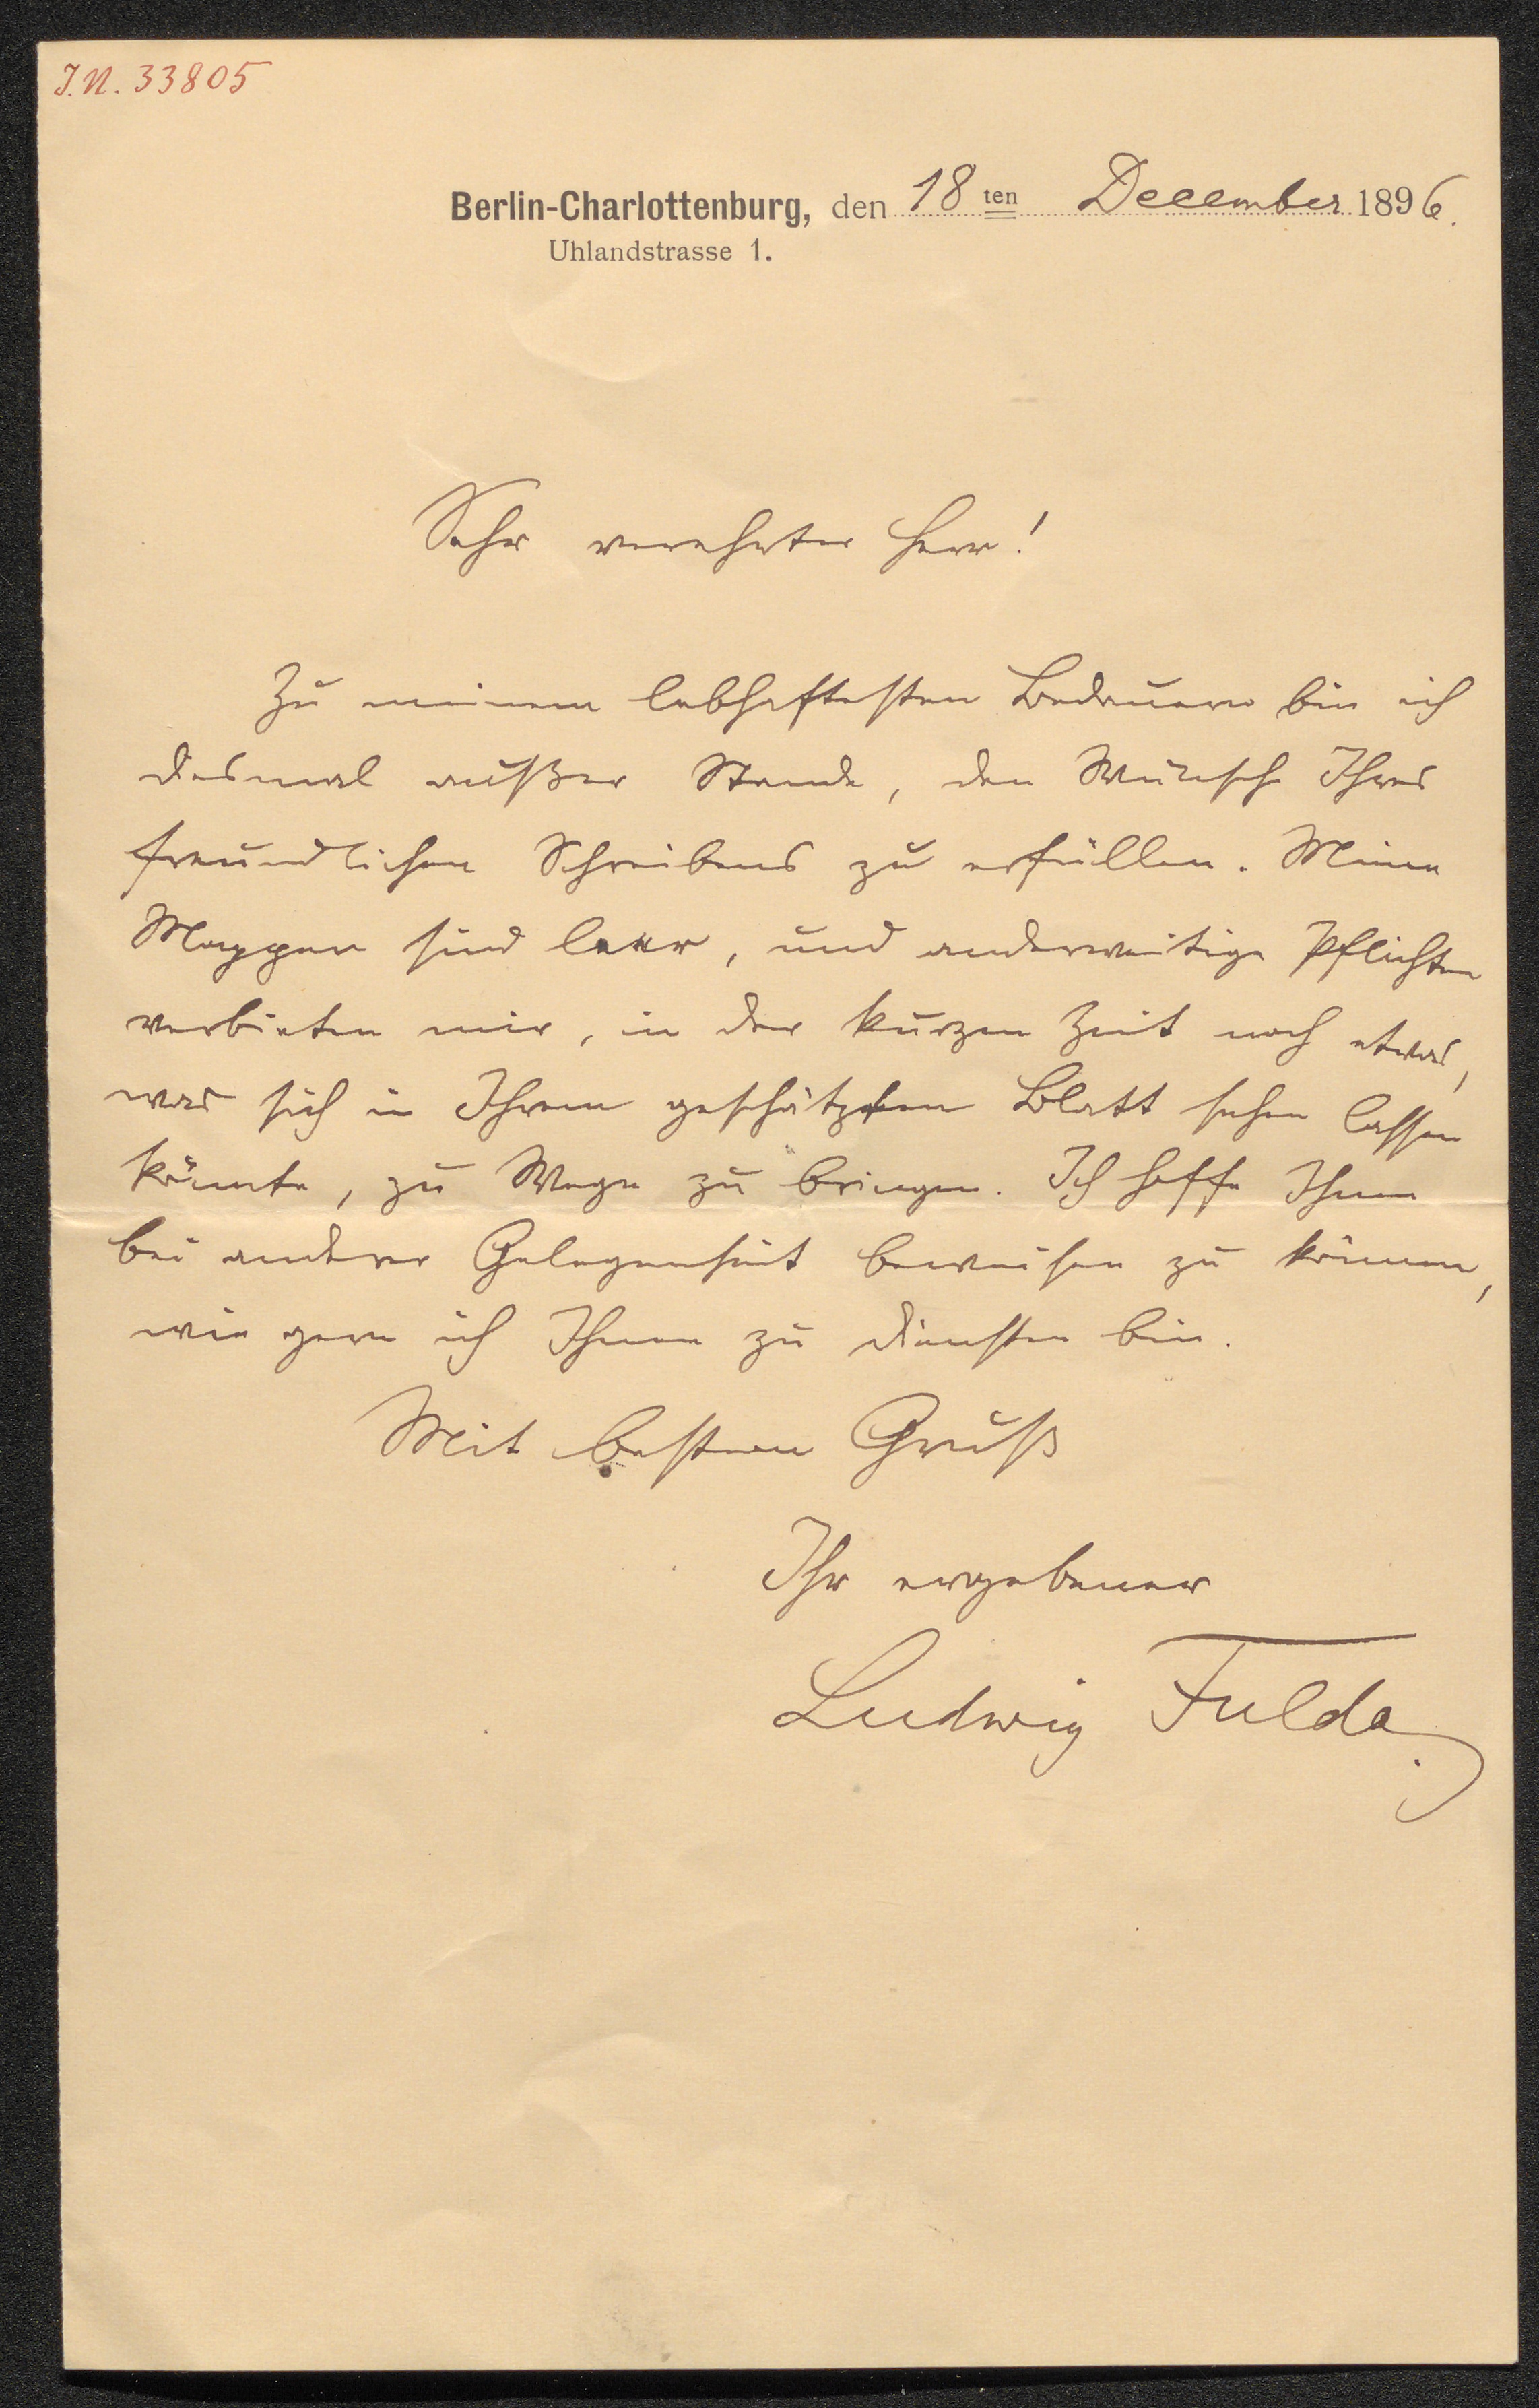 J.N. 33805
Berlin-Charlottenburg, den 18 ten December 1896.
Uhlandstrasse 1.
Sehr verehrter Herr!
Zu meinem lebhaftesten Bedauern bin ich
diesmal außer Stande, den Wunsch Ihres
freundlichen Schreibens zu erfüllen. Meine
Mappen sind leer, und anderweitige Pflichten
verbieten mir, in der kurzen Zeit noch etwas,
was sich in Ihrem geschätzten Blatt sehen lassen
könnte, zu Wege zu bringen. Ich hoffe Ihnen
bei anderer Gelegenheit beweisen zu können,
wie gern ich Ihnen zu Diensten bin.
Mit bestem Gruß
Ihr ergebener
Ludwig Fulda.